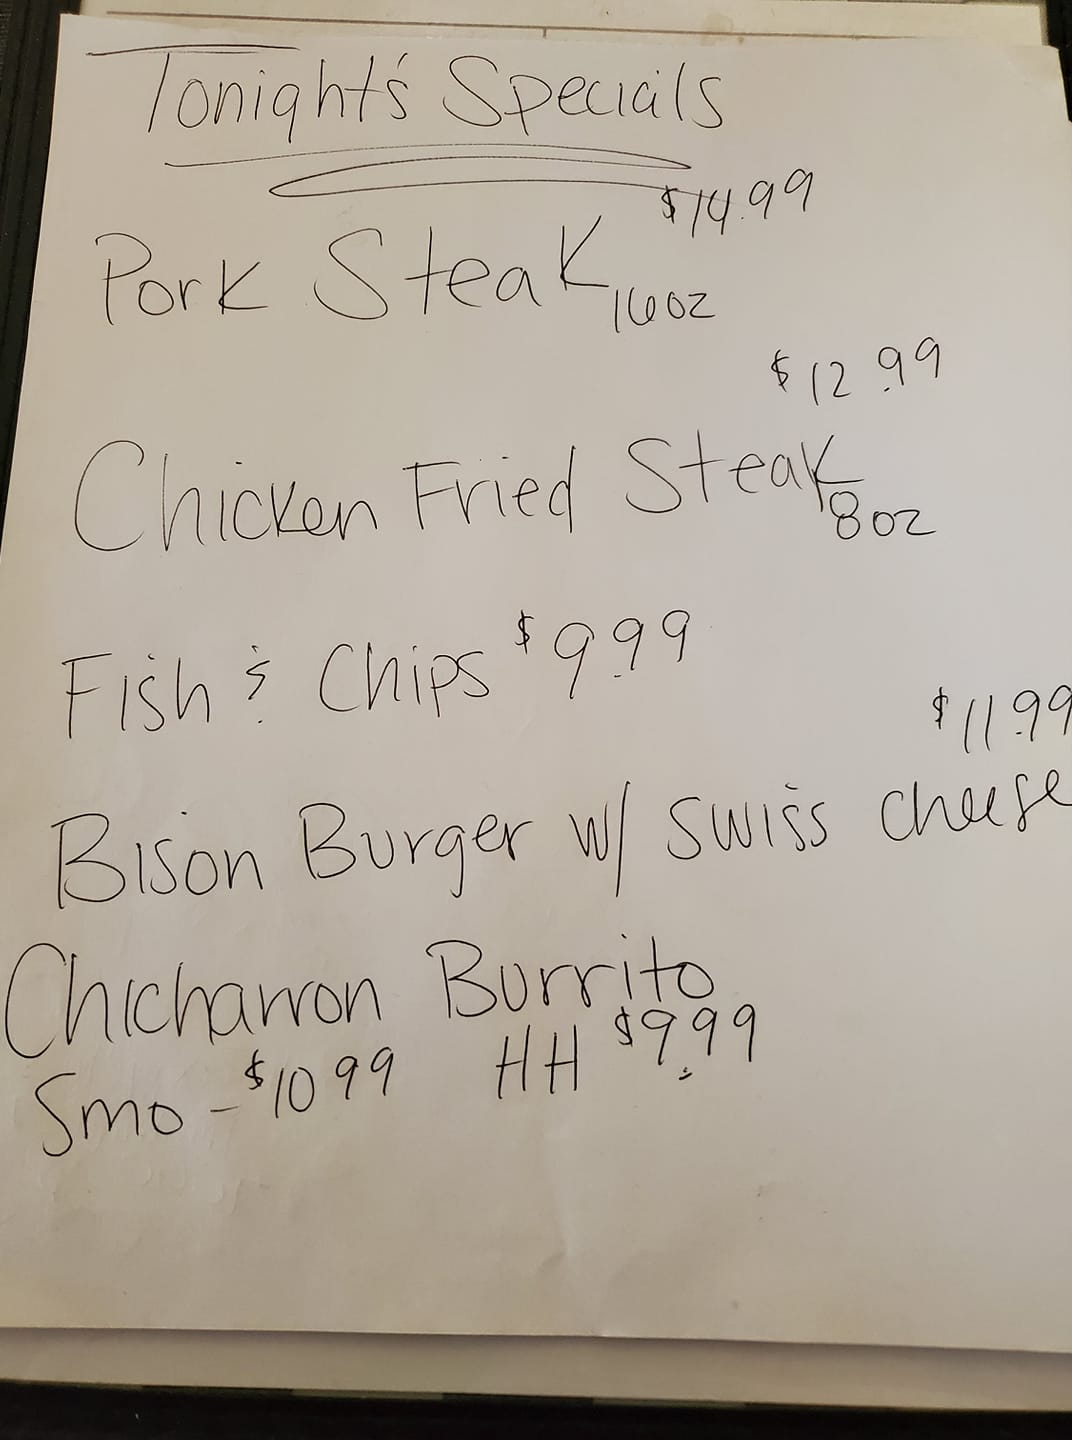 Tonight's Specials
$14.99
Pork Steak 16oz
$12.99
Chicken Fried Steak 8oz
Fish & Chips $9.99
$11.99
Bison Burger w/ swiss cheese
Chicharron Burrito
Smo - $10.99 HH $9.99